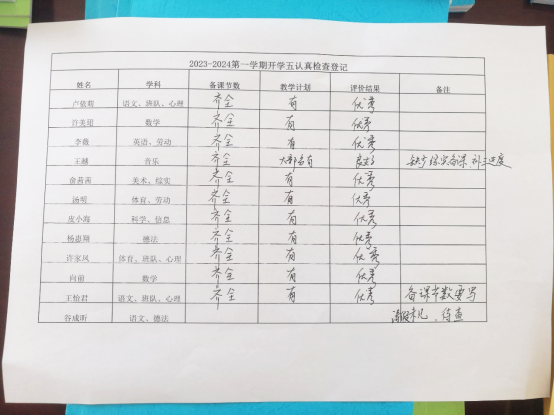 2023-2024第一学期开学五认真检查登记
姓名 学科 备课节数 教学计划 评价结果 备注
卢依萌 语文、班队、心理 齐全 有 优秀
许美玥 数学 齐全 有 优秀
李薇 英语、劳动 齐全 有 优秀
王越 音乐 齐全 大部分有 良好 缺少综实备课,补三进度
俞茜茜 美术、综实 齐全 有 优秀
汤明 体育、劳动 齐全 有 优秀
皮小海 科学、信息 齐全 有 优秀
杨惠翔 德法 齐全 有 优秀
许家凤 体育、班队、心理 齐全 有 优秀
向前 数学 齐全 有 优秀
王怡君 语文、班队、心理 齐全 有 优秀 备课节数要写
谷成昕 语文、德法 请假未见,待查